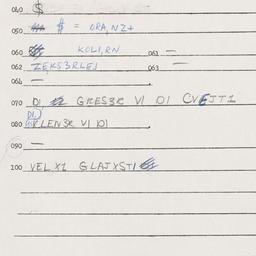 040 $
050 $ = ORA, NZ+
060 KOLI, RN 061 —
062 ZEKS3RLEJ 063 —
064 —
070 DI GRES3R VI DI CVEJTI
080 DI VLEN3R VI DI
090 —
100 VEL XI GLAJXSTI